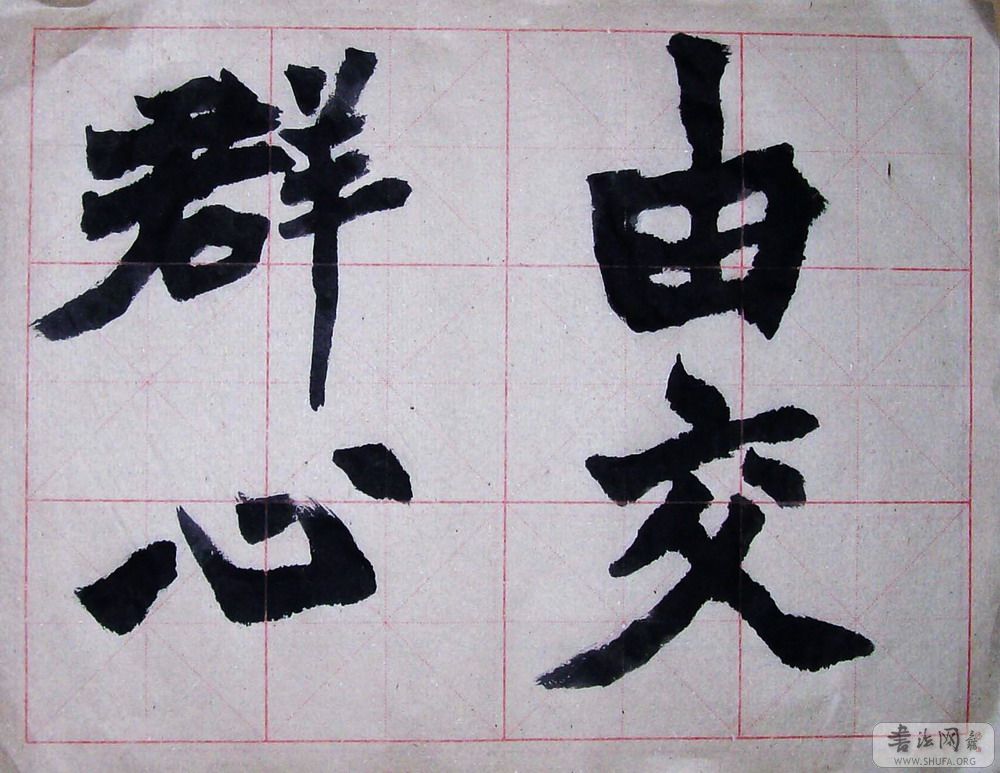 由交
群心
书法网
WWW.SHUFA.ORG